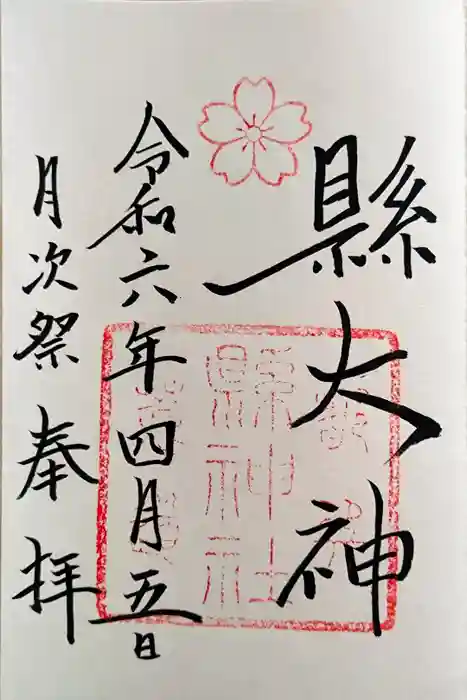 縣大神
令和六年四月五日
月次祭 奉拝